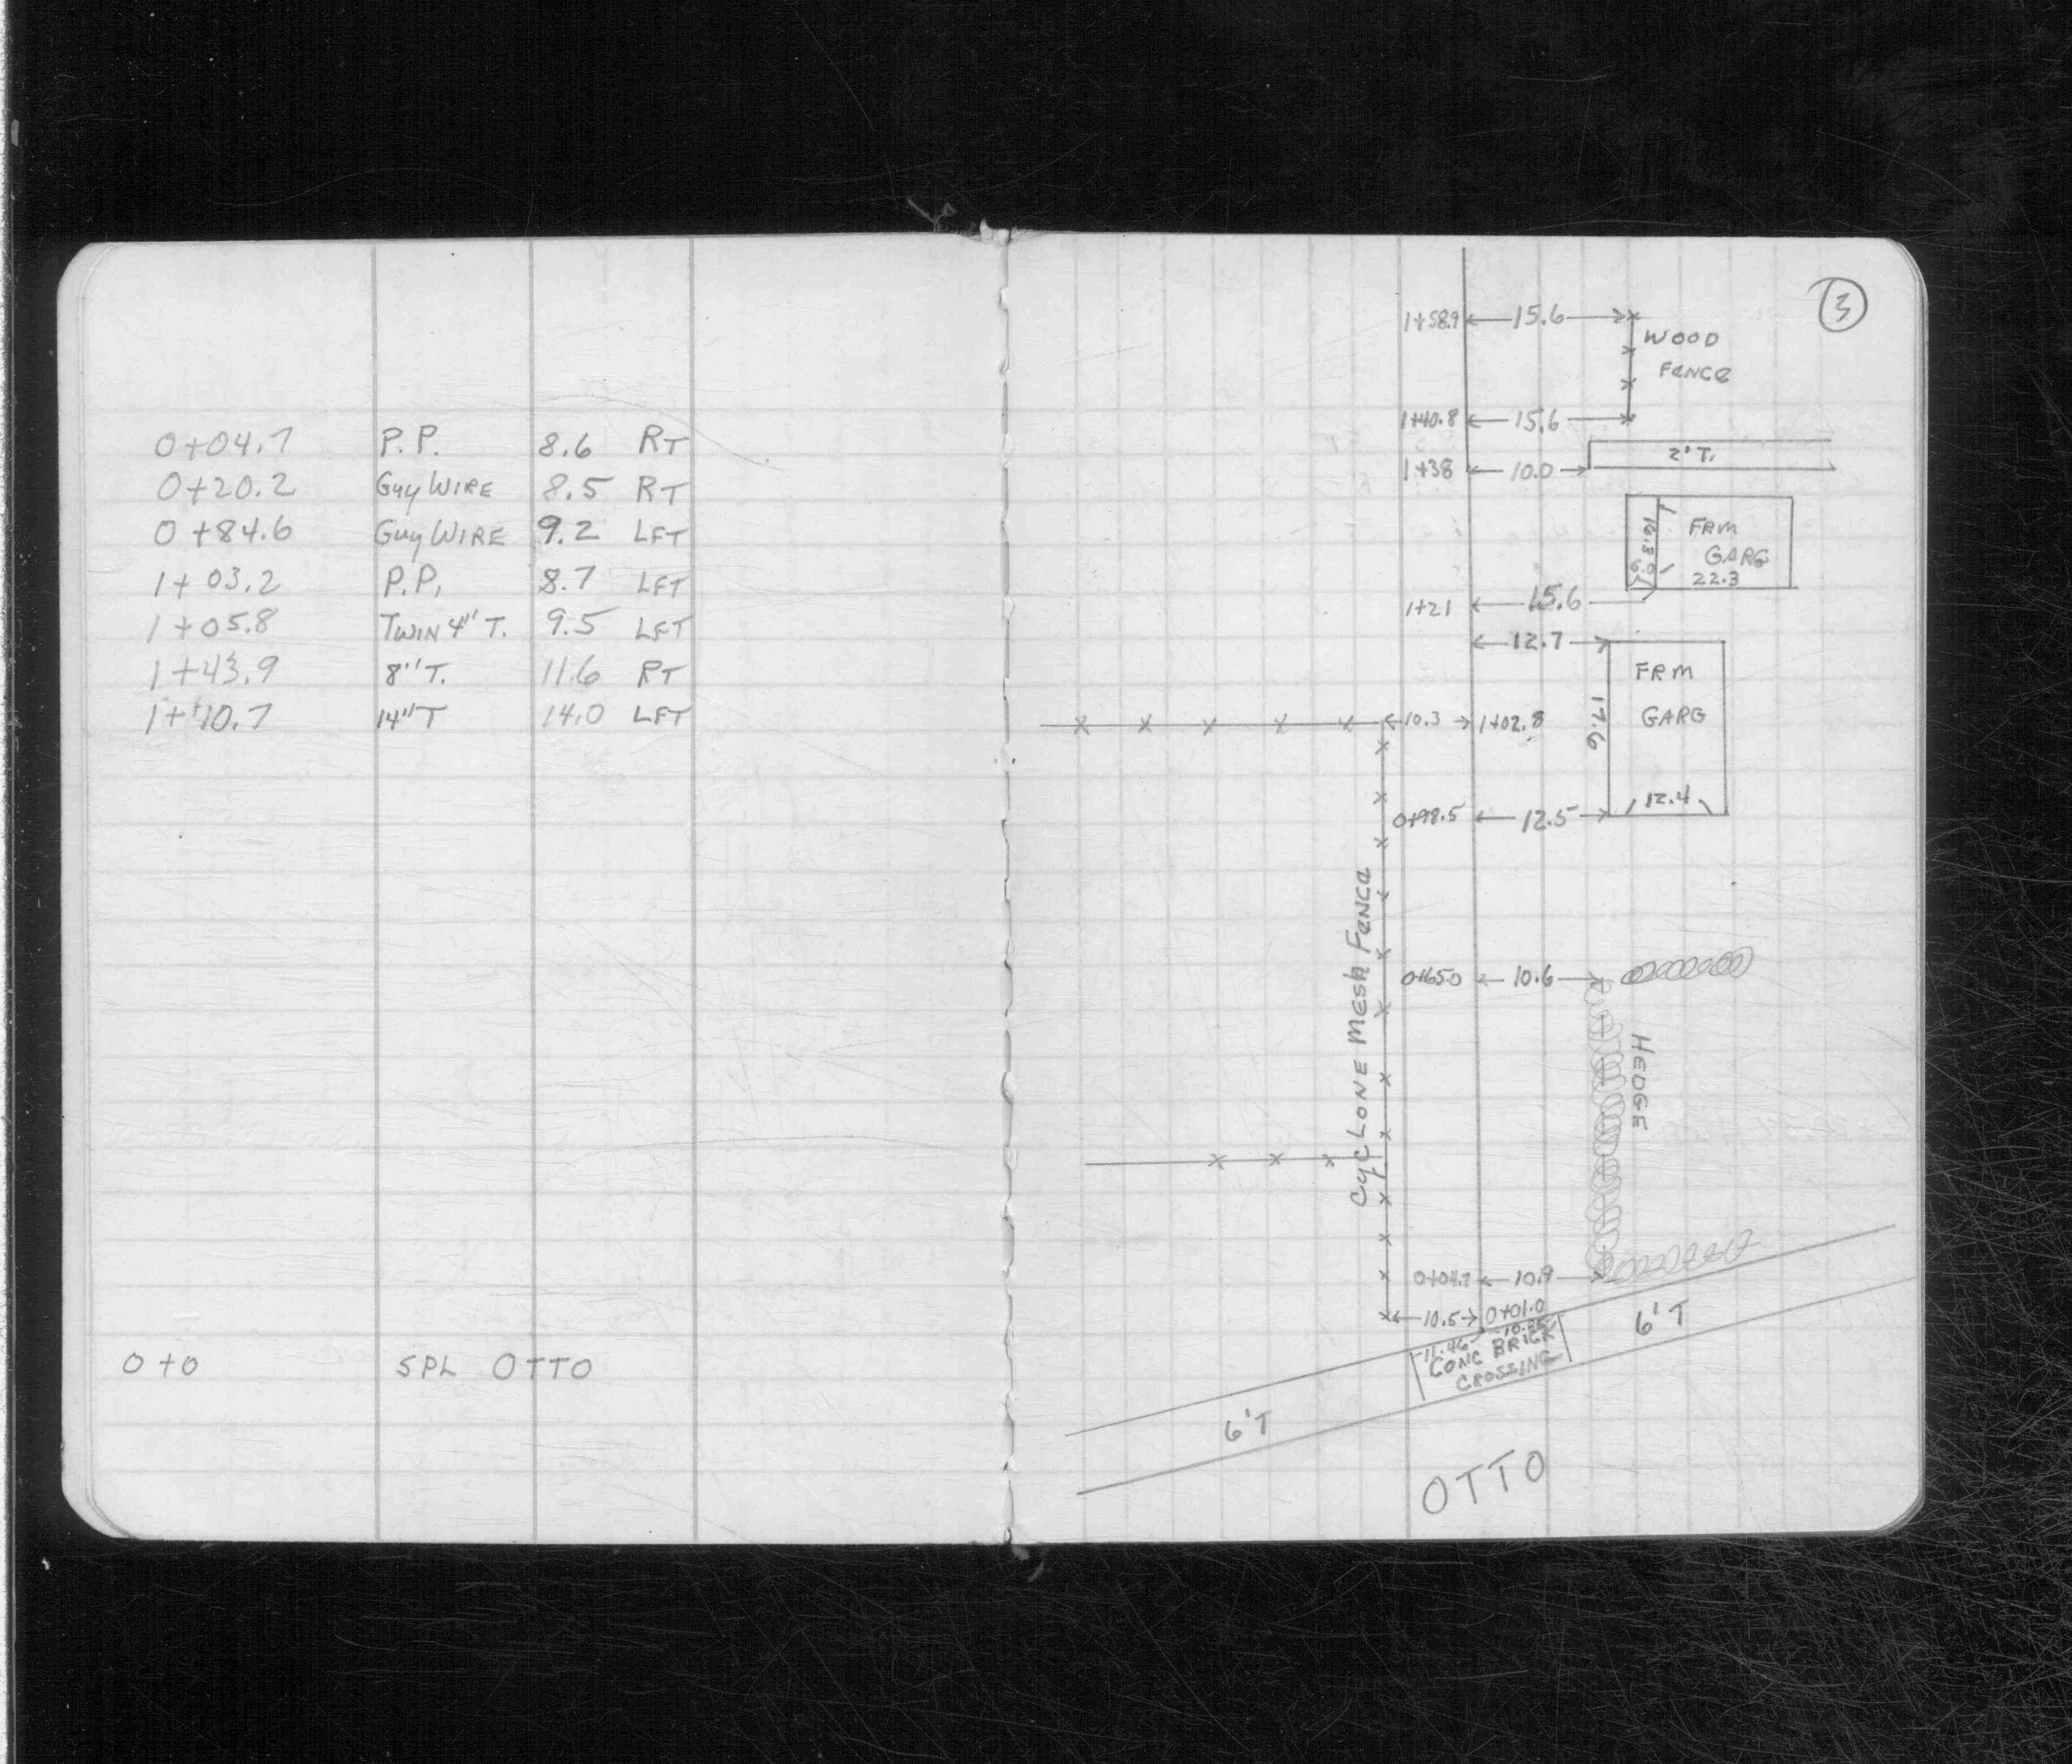 0+04.7 P.P. 8.6 RT
0+20.2 Guy WIRE 8.5 RT
0+84.6 Guy WIRE 9.2 LFT
1+03.2 P.P. 8.7 LFT
1+05.8 TWIN 4" T. 9.5 LFT
1+43.9 8" T. 11.6 RT
14" T 14.0 LFT
0+0 SPL OTTO
3
1+58.9 15.6
WOOD
FENCE
1+40.8 15.6
2' T.
1+38 10.0
FRM
GARG
22.3
1+21 15.6
12.7
FRM
GARG
17.6
10.3 1+02.8
12.4
0+98.5 12.5
CYCLONE MESH FENCE
0+65.0 10.6
HEDGE
0+04.7 10.9
10.5 0+01.0
6' T
11.46
CONC BRICK
CROSSING
6' T
OTTO